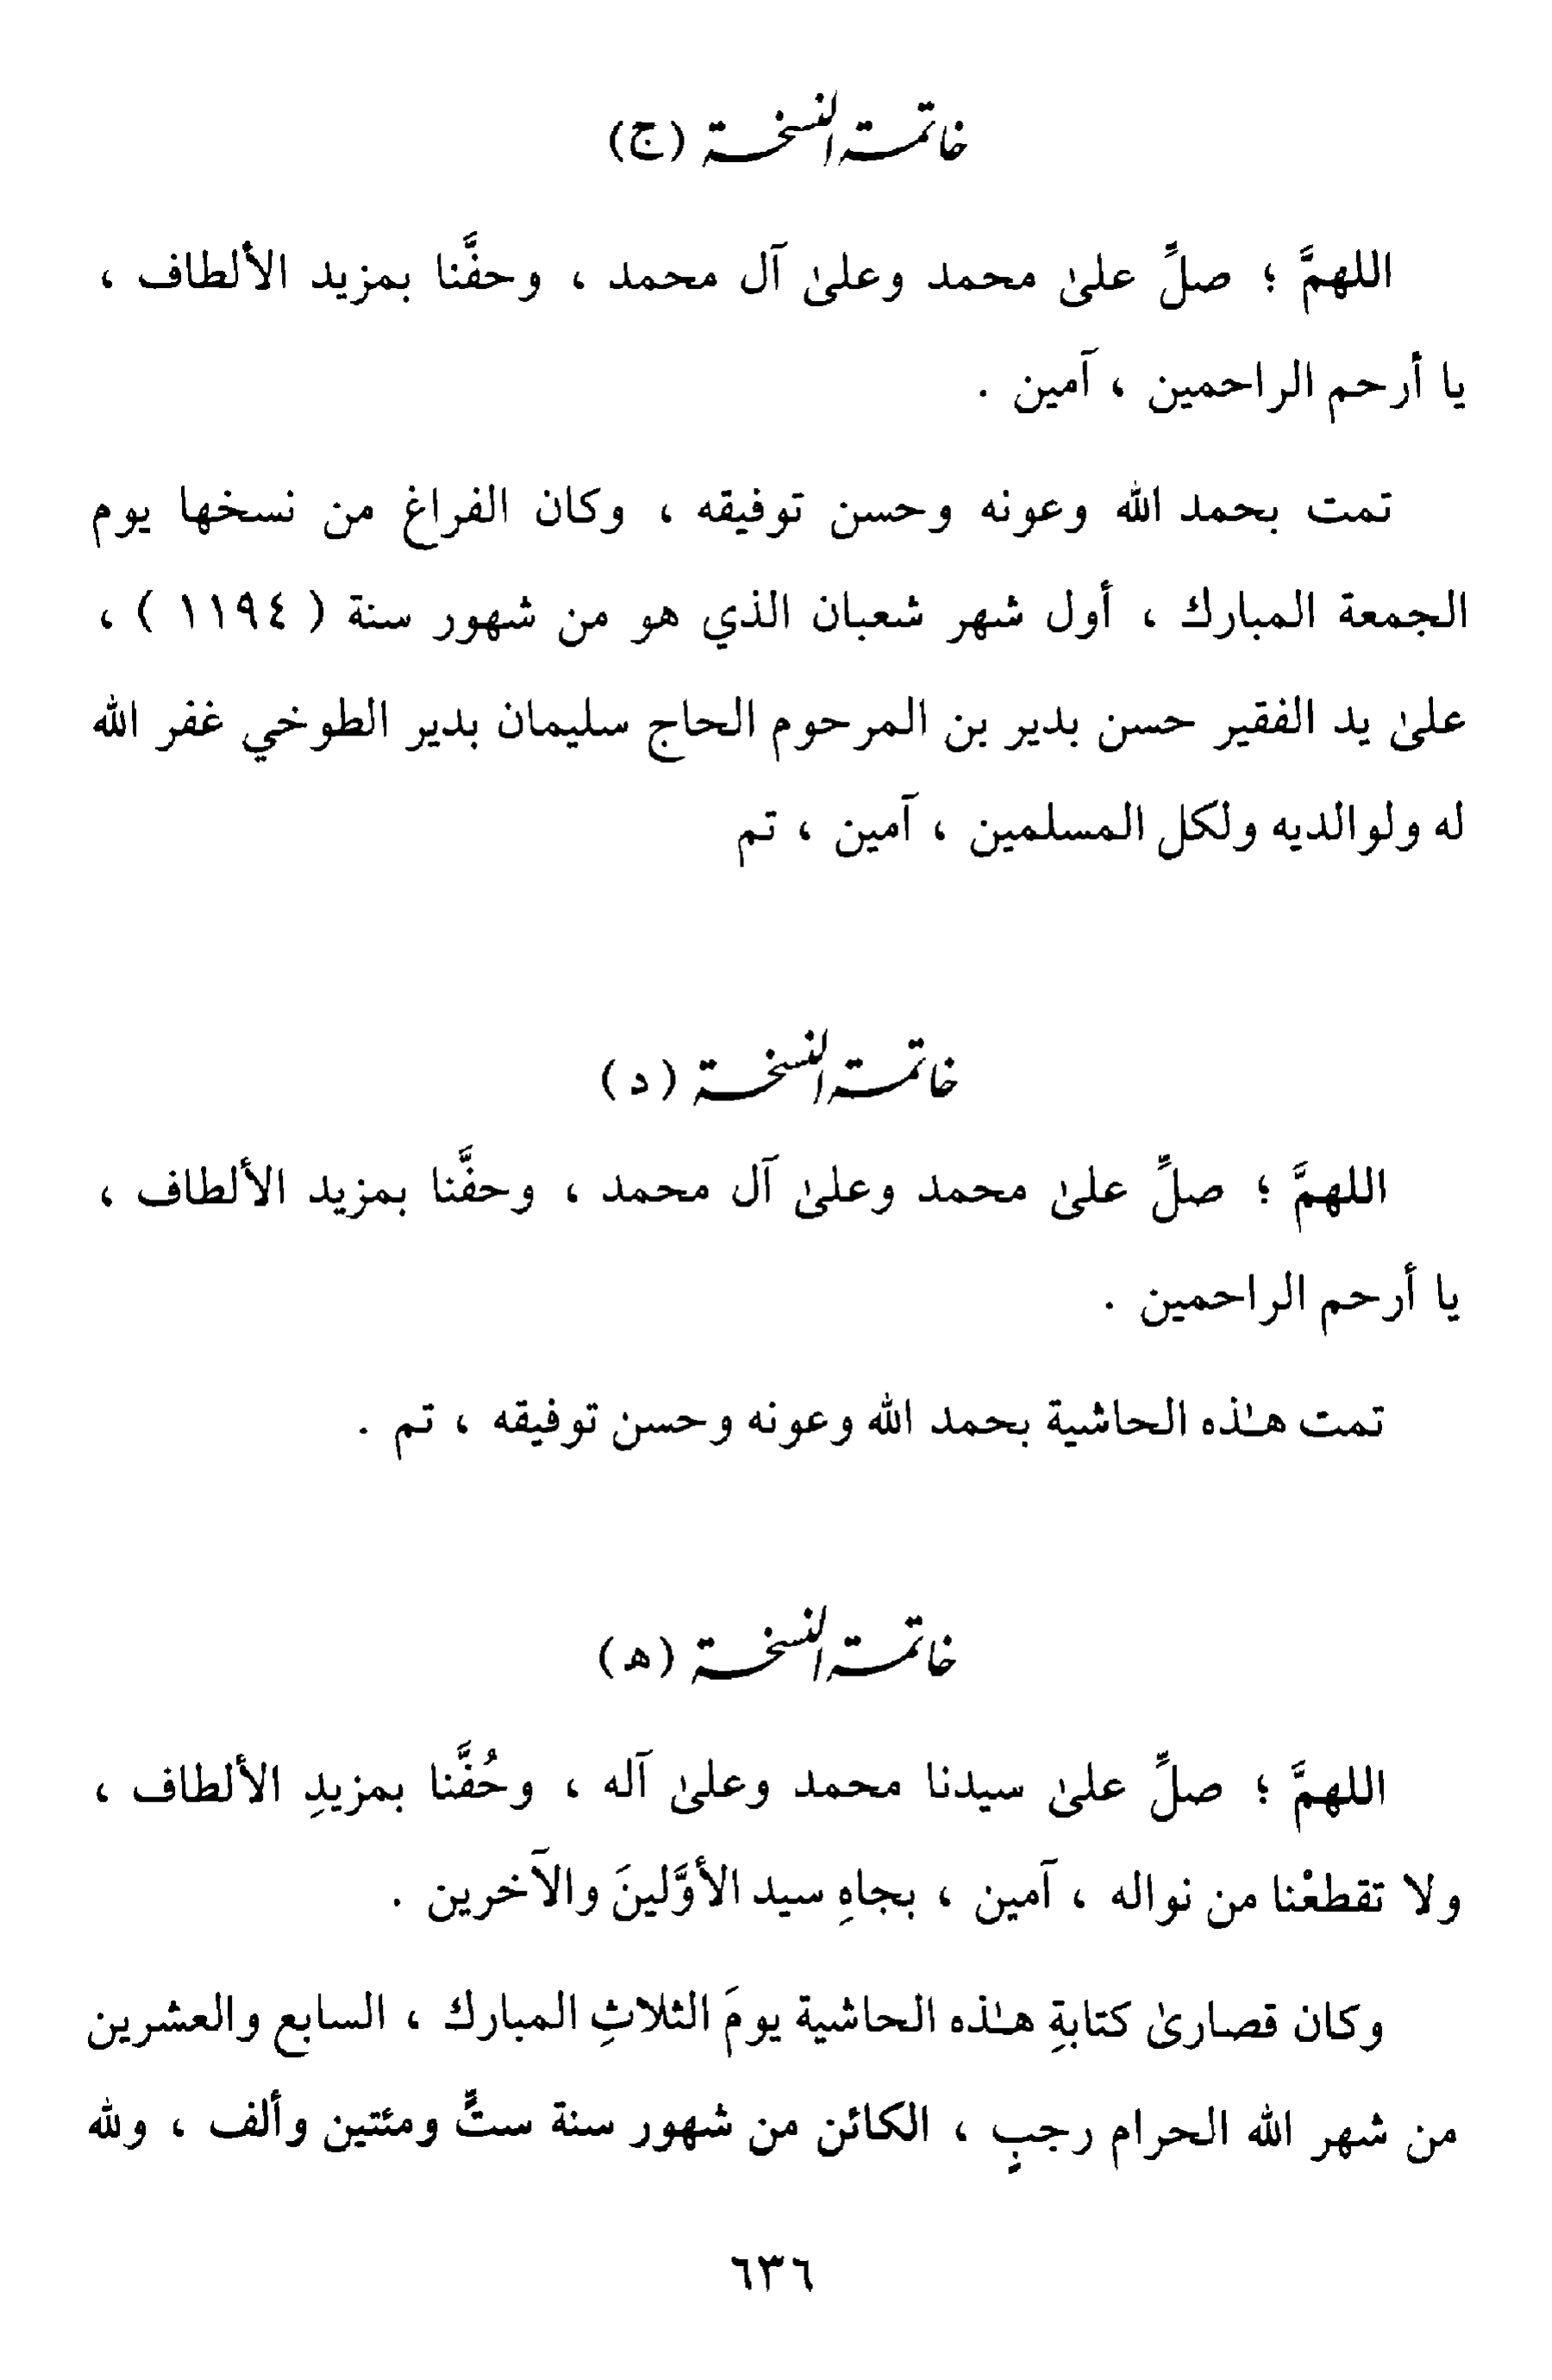 خاتمة النسخة (ج)
اللهمَّ ؛ صلِّ علىٰ محمد وعلىٰ آل محمد ، وحفَّنا بمزيد الألطاف ،
يا أرحم الراحمين ، آمين .
تمت بحمد الله وعونه وحسن توفيقه ، وكان الفراغ من نسخها يوم
الجمعة المبارك ، أول شهر شعبان الذي هو من شهور سنة ( ١١٩٤ ) ،
علىٰ يد الفقير حسن بدير بن المرحوم الحاج سليمان بدير الطوخي غفر الله
له ولوالديه ولكل المسلمين ، آمين ، تم
خاتمة النسخة (د)
اللهمَّ ؛ صلِّ علىٰ محمد وعلىٰ آل محمد ، وحفَّنا بمزيد الألطاف ،
يا أرحم الراحمين .
تمت هـٰذه الحاشية بحمد الله وعونه وحسن توفيقه ، تم .
خاتمة النسخة (هـ)
اللهمَّ ؛ صلِّ علىٰ سيدنا محمد وعلىٰ آله ، وحُفَّنا بمزيدِ الألطاف ،
ولا تقطعْنا من نواله ، آمين ، بجاهِ سيد الأوَّلينَ والآخرين .
وكان قصارىٰ كتابةِ هـٰذه الحاشية يومَ الثلاثِ المبارك ، السابع والعشرين
من شهر الله الحرام رجبٍ ، الكائن من شهور سنة ستٍّ ومئتين وألف ، ولله
٦٣٦